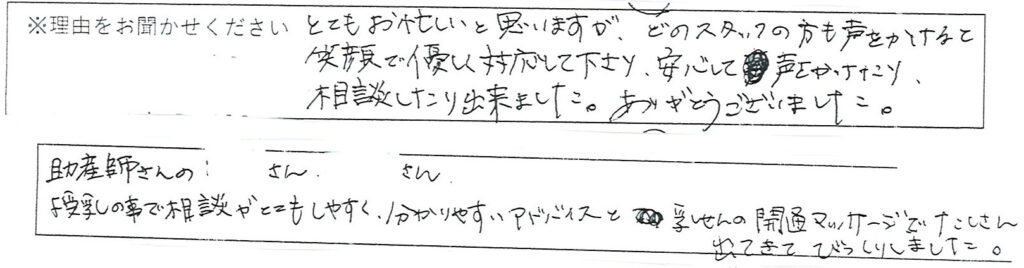 ※理由をお聞かせください とてもお忙しいと思いますが、どのスタッフの方も声をかけると
笑顔で優しく対応して下さり、安心して声をかけたり、
相談したり出来ました。ありがとうございました。
助産師さんの: さん. さん.
授乳の事で相談がとてもしやすく、分かりやすいアドバイスと乳せんの開通マッサージでたくさん
出てきてびっくりしました。